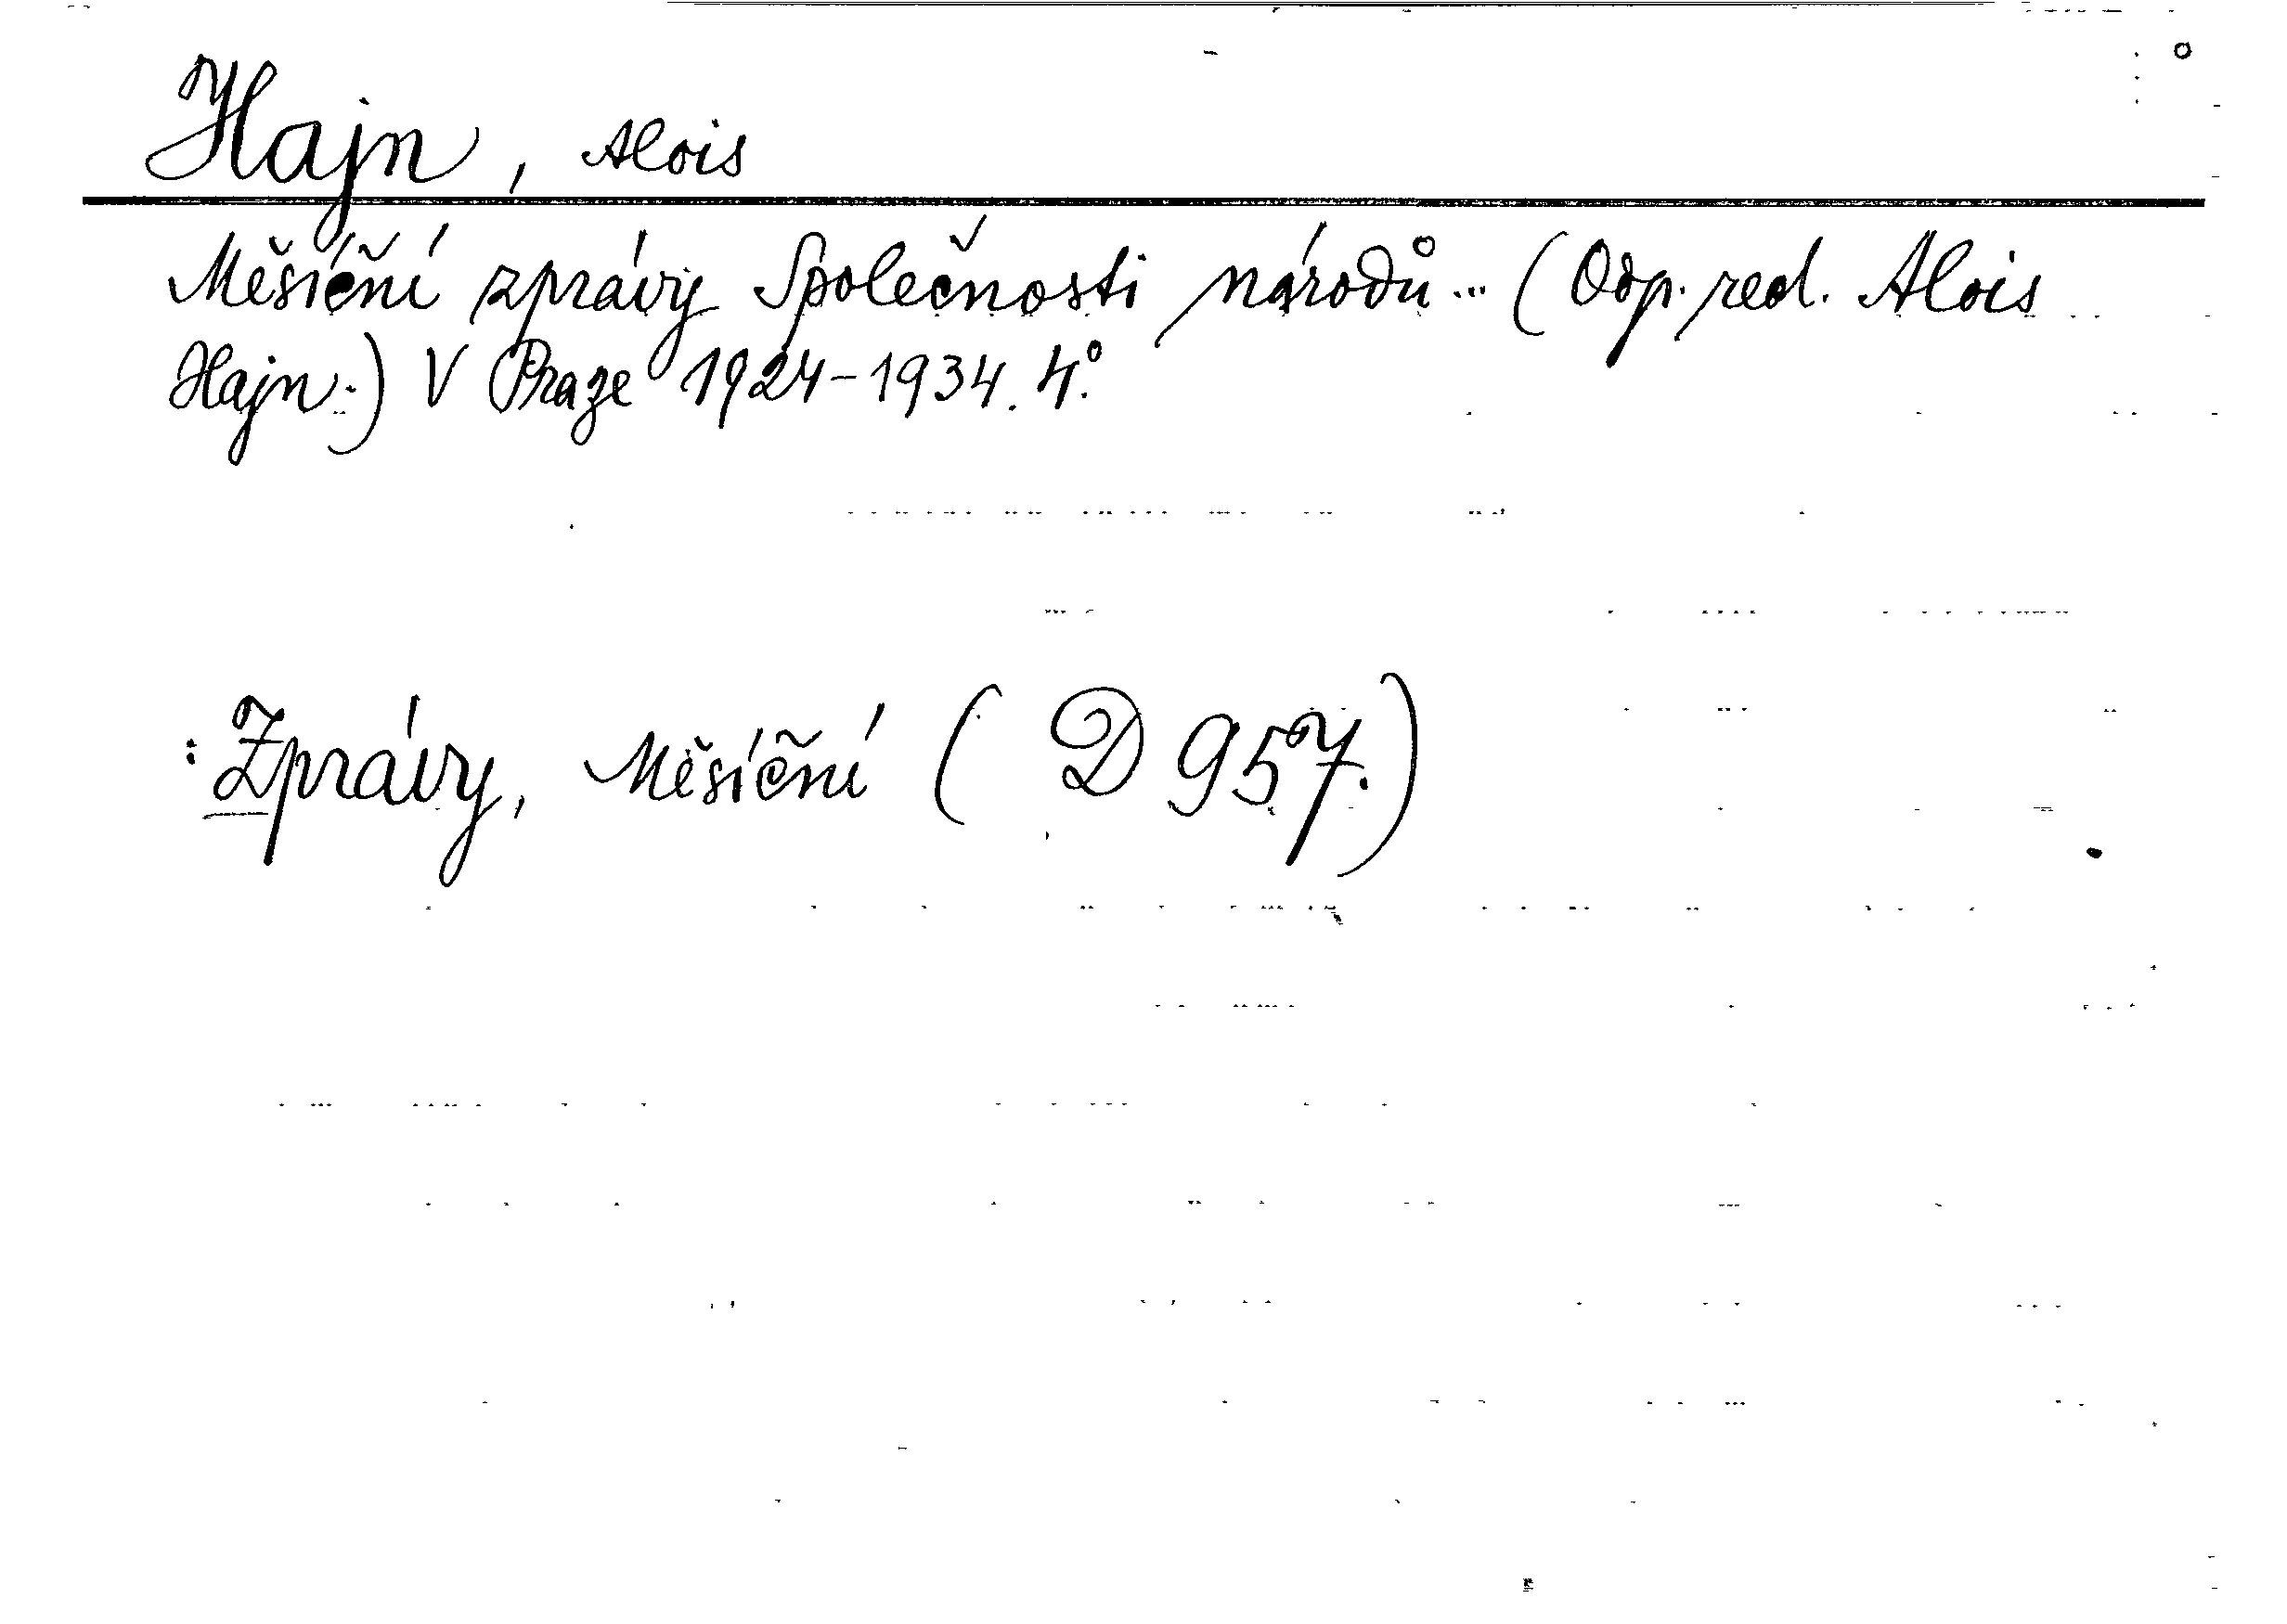 Hajn, Alois
Měsíční zprávy Společnosti národů... (Odp. red. Alois
Hajn.) V Praze 1924-1934. 4°.
: Zprávy, Měsíční ( D 957.)